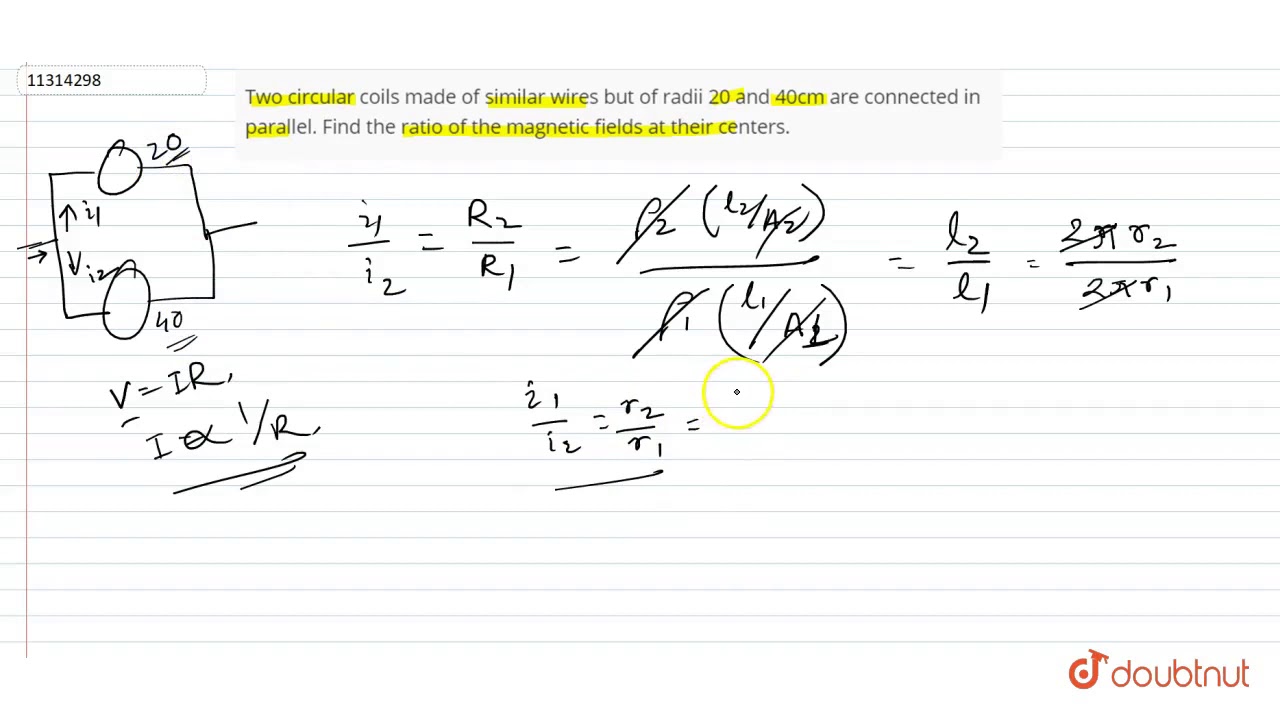 11314298
Two circular coils made of similar wires but of radii 20 and 40cm are connected in
parallel. Find the ratio of the magnetic fields at their centers.
20
i1
i2
40
i1/i2 = R2/R1 = ρ2 (l2/A2) / ρ1 (l1/A1) = l2/l1 = 2π r2 / 2π r1
V = IR,
I ∝ 1/R,
i1/i2 = r2/r1 =
doubtnut